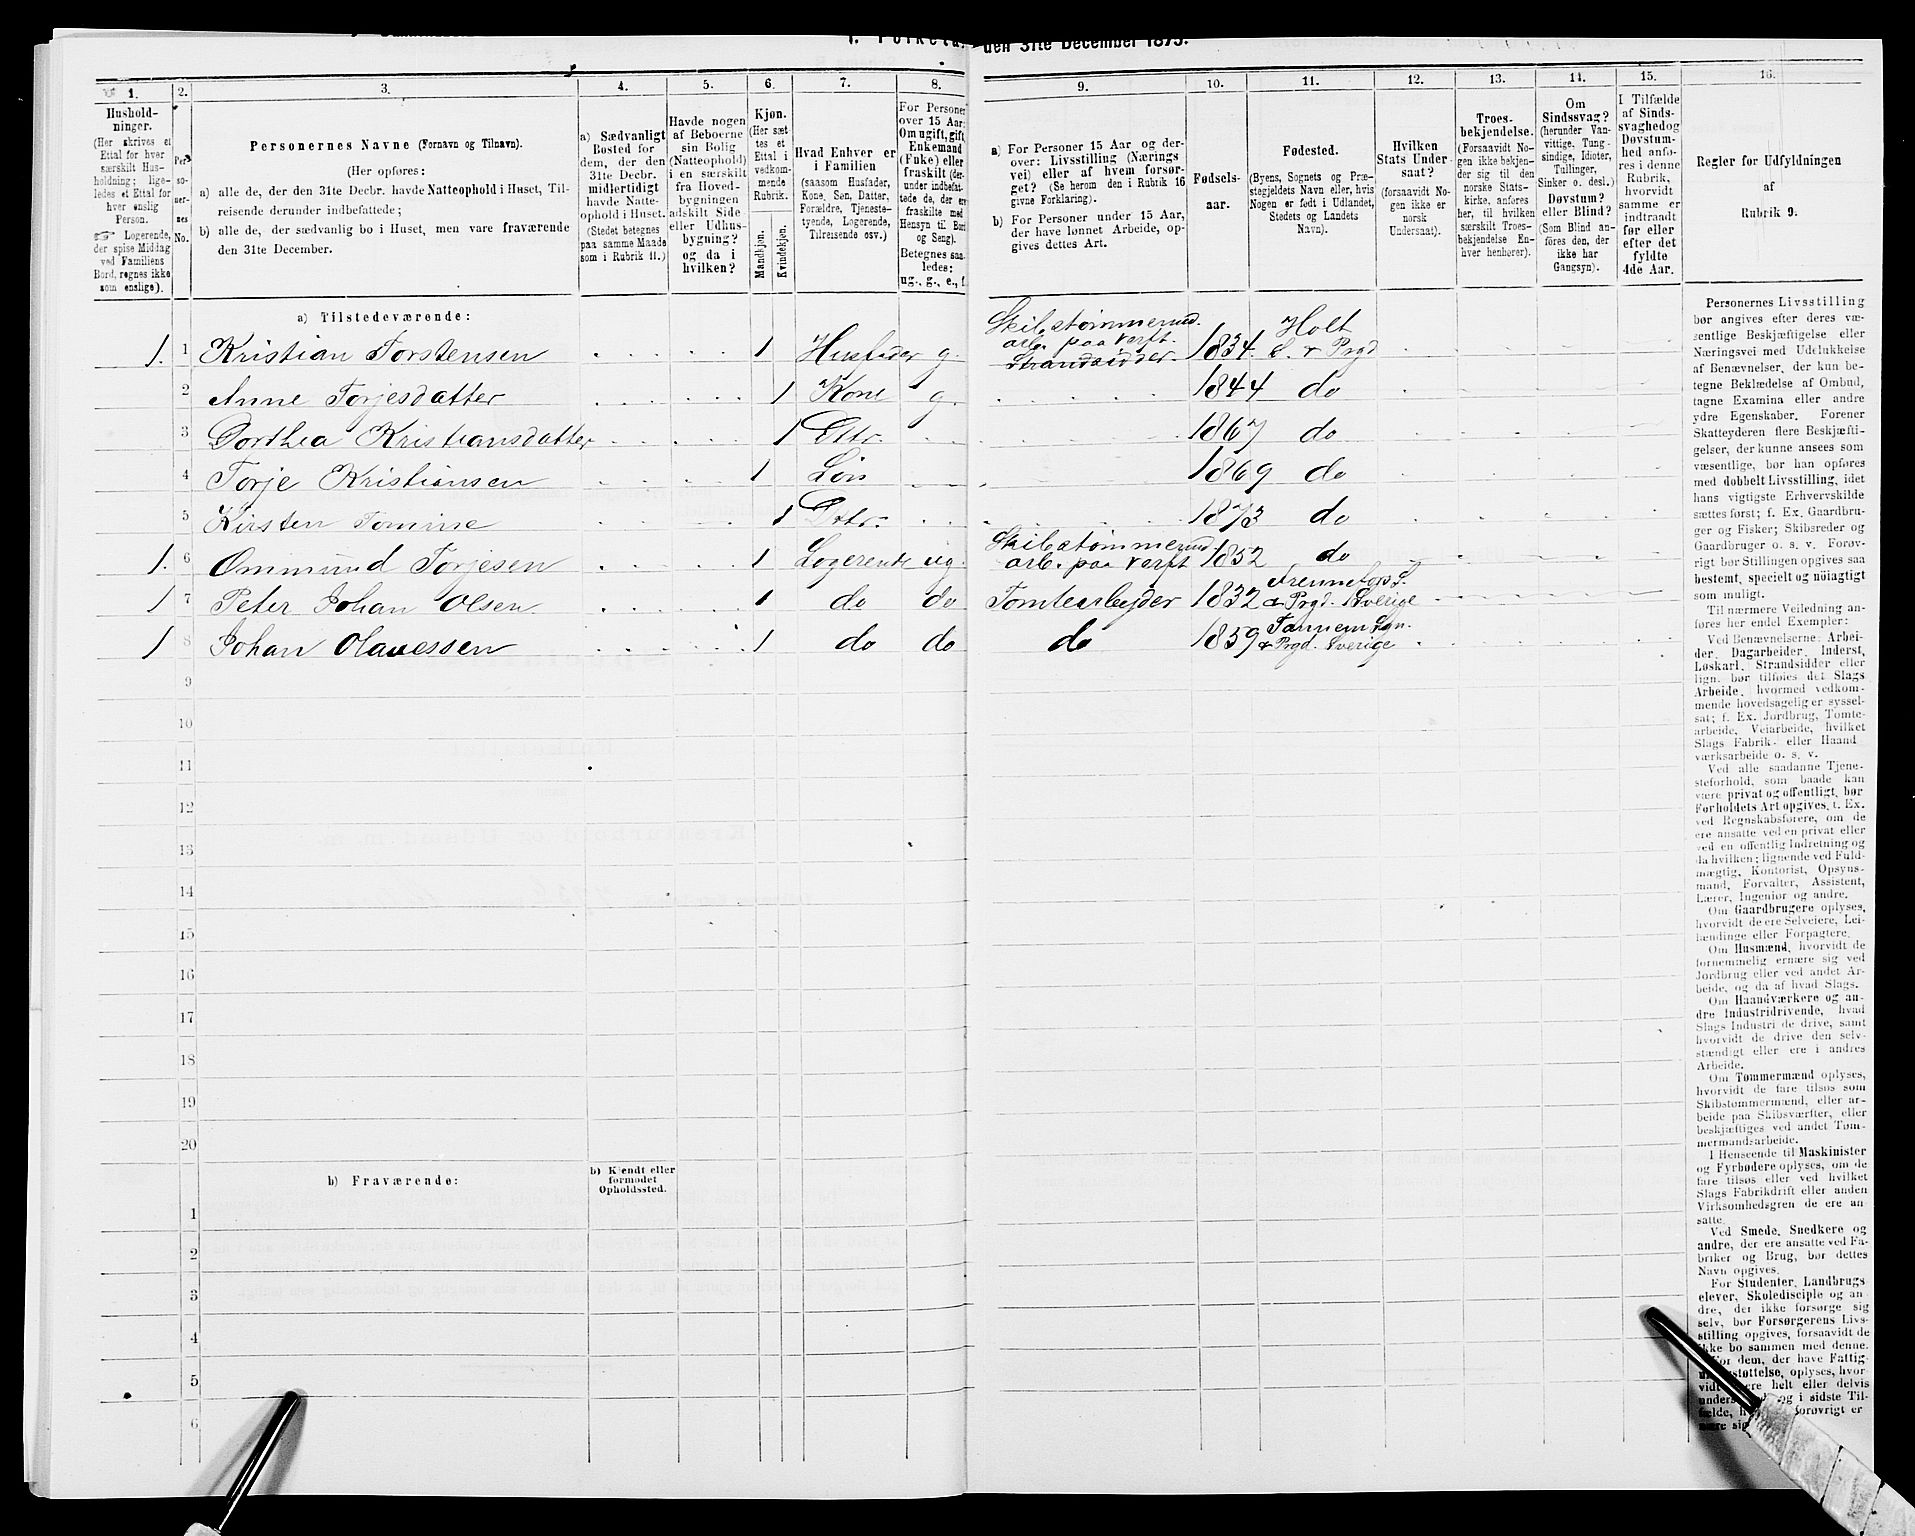 den 31te December 1875.
1. 2. 3. 4. 5. 6. 7. 8. 9. 10. 11. 12. 13. 14. 15. 16.
Hushold-
ninger.
(Her skrives et
Ettal for hver
særskilt Hus-
holdning; lige-
ledes et Ettal for
hver enslig
Person.
☞ Logerende,
der spise Middag
ved Familiens
Bord, regnes ikke
som enslige).
Per-
so-
ner-
nes
No.
Personernes Navne (Fornavn og Tilnavn).
(Her opføres:
a) alle de, der den 31te Decbr. havde Natteophold i Huset, Til-
reisende derunder indbefattede;
b) alle de, der sædvanlig bo i Huset, men vare fraværende
den 31te December.
a) Sædvanligt
Bosted for
dem, der den
31te Decbr.
midlertidigt
havde Natte-
ophold i Huset.
(Stedet betegnes
paa samme Maade
som i Rubrik 11.)
Havde nogen
af Beboerne
sin Bolig
(Natteophold)
i en særskilt
fra Hoved-
bygningen
adskilt Side-
eller Udhus-
bygning?
og da i
hvilken?
Kjøn.
(Her sæt-
tes et
Ettal i
vedkom-
mende
Rubrik.
Mandkjøn.
Kvindekjøn.
Hvad Enhver er
i Familien
(saasom Husfader,
Kone, Søn, Datter,
Forældre, Tjeneste-
tyende, Logerende,
Tilreisende osv.)
For Personer
over 15 Aar:
Om ugift, gift,
Enkemand
(Enke) eller
fraskilt (der-
under indbefat-
tede de, der ere
fraskilte med
Hensyn til Bord
og Seng).
Betegnes saa-
ledes:
ug., g., e., f.
a) For Personer 15 Aar og der-
over: Livsstilling (Nærings-
vei) eller af hvem forsør-
get? (Se herom den i Rubrik 16
givne Forklaring).
b) For Personer under 15 Aar,
der have lønnet Arbeide, op-
gives dettes Art.
Fødsels-
aar.
Fødested.
(Byens, Sognets og Præ-
stegjeldets Navn eller, hvis
Nogen er født i Udlandet,
Stedets og Landets
Navn).
Hvilken
Stats Under-
saat?
(forsaavidt No-
gen ikke er
norsk
Undersaat).
Troes-
bekjendelse.
(Forsaavidt No-
gen ikke bekjen-
der sig til den
norske Stats-
kirke, anføres
her, til hvilken
særskilt Troes-
bekjendelse En-
hver henhører).
Om
Sindssvag?
(herunder Van-
vittige, Tung-
sindige, Idioter,
Tullinger,
Sinker o. desl.)
Døvstum?
eller Blind?
(Som Blind an-
føres den, der
ikke har
Gangsyn).
I Tilfælde
af Sinds-
svaghed og
Døvstum-
hed anfø-
res i denne
Rubrik,
hvorvidt
samme er
indtraadt
før eller
efter det
fyldte
4de Aar.
Regler for Udfyldningen
af
Rubrik 9.
a) Tilstedeværende:
1. 1 Kristian Torstensen 1 Husfader g. Skibstømmermd. arb. paa Verft. Strandsidder 1834 Holt S. & Prgd
2 Anne Torjesdatter 1 Kone g. 1844 do
3 Dorthea Kristiansdatter 1 Dttr. 1867 do
4 Torje Kristiansen 1 Søn 1869 do
5 Kirsten Tomine 1 Dttr. 1873 do
1. 6 Ommund Torjesen 1 Logerende ug. Skibstømmermd. arb. paa Verft 1852 do
1 7 Peter Johan Olsen 1 do do Tomtearbejder 1832 & Prgd. Sverige
1 8 Johan Olavessen 1 do do do 1859 & Prgd. Sverige
9
10
11
12
13
14
15
16
17
18
19
20
b) Fraværende:
b) Kjendt eller
formodet
Opholdssted.
1
2
3
4
5
6
Personernes Livsstilling
bør angives efter deres væ-
sentlige Beskjæftigelse eller
Næringsvei med Udelukkelse
af Benævnelser, der kun be-
tegne Beklædelse af Ombud,
tagne Examina eller andre
ydre Egenskaber. Forener
Skatteyderen flere Beskjæfti-
gelser, der kunne ansees som
væsentlige, bør han opføres
med dobbelt Livsstilling, idet
hans vigtigste Erhvervskilde
sættes først; f. Ex. Gaardbru-
ger og Fisker; Skibsreder og
Gaardbruger o. s. v. Forøv-
rigt bør Stillingen opgives saa
bestemt, specielt og nøiagtigt
som muligt.
Til nærmere Veiledning an-
føres her endel Exempler:
Ved Benævnelserne: Arbei-
der, Dagarbeider, Inderst,
Løskarl, Strandsidder eller
lign. bør tilføies det Slags
Arbeide, hvormed vedkom-
mende hovedsagelig er syssel-
sat; f. Ex. Jordbrug, Tomte-
arbeide, Veiarbeide, hvilket
Slags Fabrik- eller Haand-
værksarbeide o. s. v.
Ved alle saadanne Tjene-
steforhold, som baade kan
være privat og offentligt, bør
Forholdets Art opgives, f. Ex.
ved Regnskabsførere, om de
ere ansatte ved en privat eller
ved en offentlig Indretning og
da hvilken; lignende ved Fuld-
mægtig, Kontorist, Opsyns-
mand, Forvalter, Assistent,
Lærer, Ingeniør og andre.
Om Gaardbrugere oplyses,
hvorvidt de ere Selveiere, Lei-
lændinge eller Forpagtere.
Om Husmænd, hvorvidt de
fornemmelig ernære sig ved
Jordbrug eller ved andet Ar-
beide, og da af hvad Slags.
Om Haandværkere og an-
dre Industridrivende, hvad
Slags Industri de drive, samt
hvorvidt de drive den selv-
stændigt eller ere i andres
Arbeide.
Om Tømmermænd oplyses,
hvorvidt de fare tilsøs som
Skibstømmermænd, eller ar-
beide paa Skibsværfter, eller
beskjæftiges ved andet Tøm-
mermandsarbeide.
I Henseende til Maskinister
og Fyrbødere oplyses, om de
fare tilsøs eller ved hvilket
Slags Fabrikdrift eller anden
Virksomhedsgren de ere an-
satte.
Ved Smede, Snedkere og
andre, der ere ansatte ved Fa-
briker og Brug, bør dettes
Navn opgives.
For Studenter, Landbrugs-
elever, Skoledisciple og an-
dre, der ikke forsørge sig
selv, bør Forsørgerens Livs-
stilling opgives, forsaavidt de
ikke bo sammen med denne.
For dem, der have Fattig-
understøttelse, oplyses, hvor-
helt eller delvis
og i sidste Til-
forøvrigt er